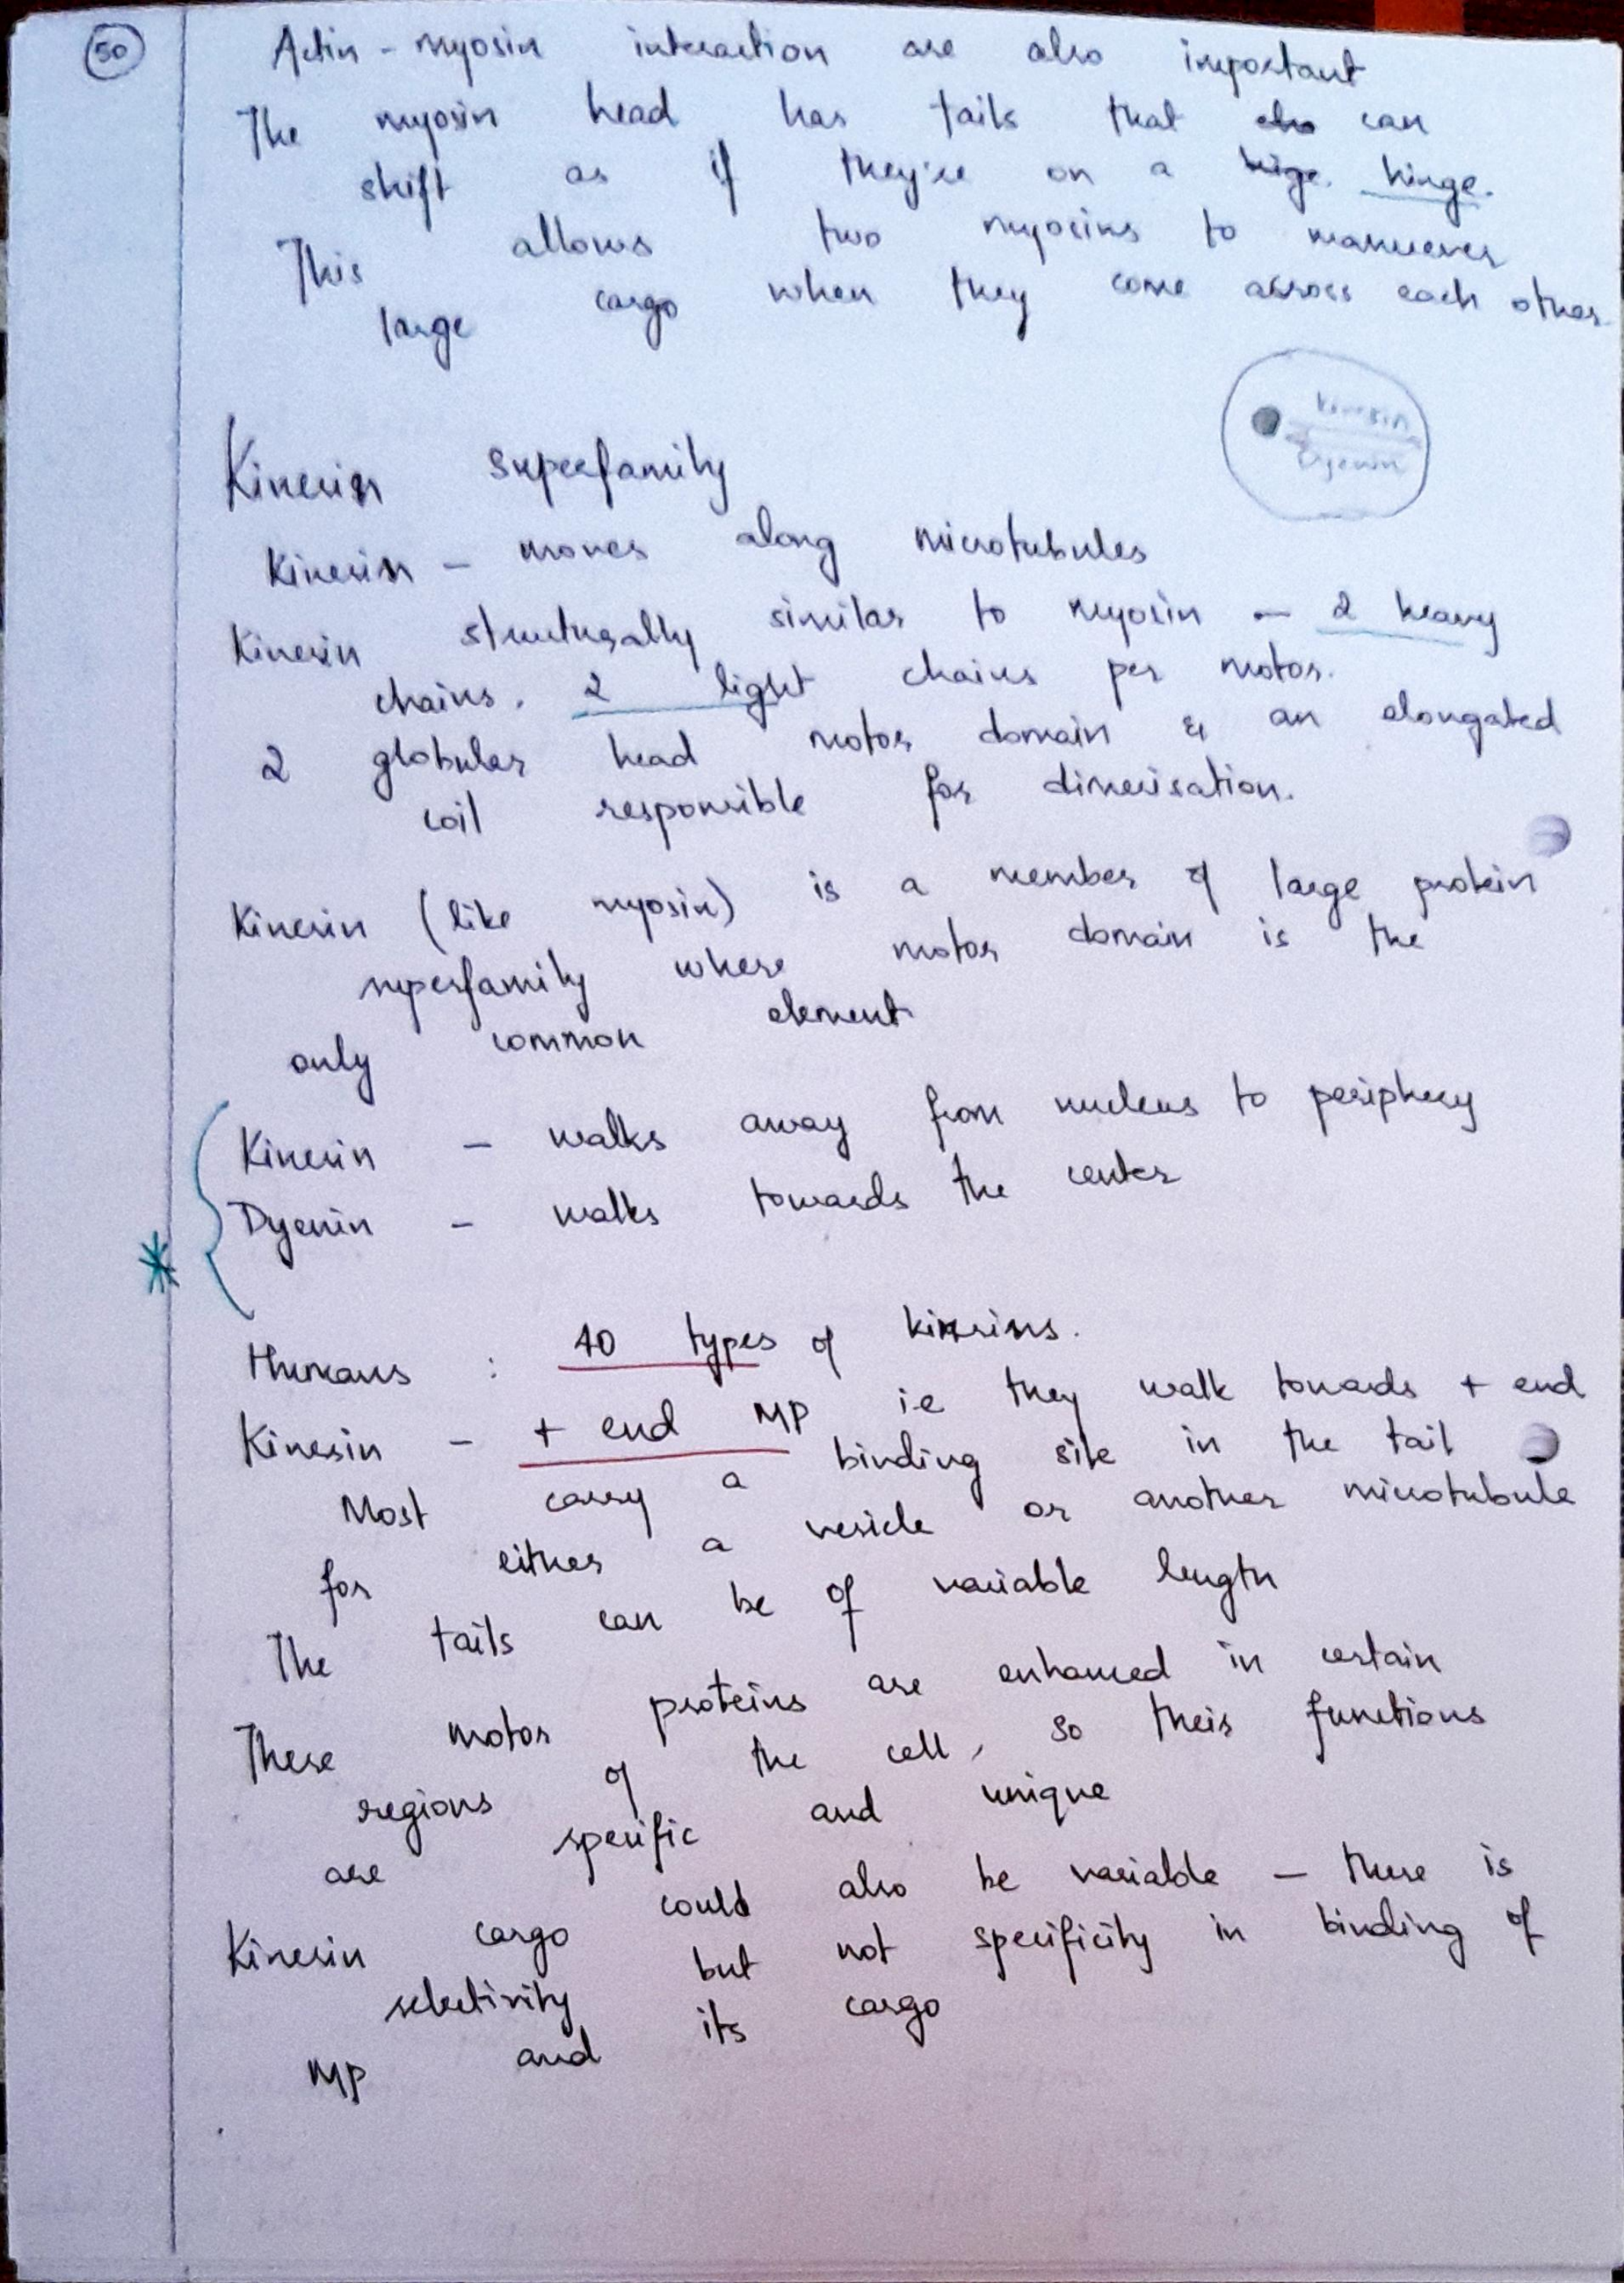 50
Actin - myosin interaction are also important
The myosin head has tails that can
shift as if they're on a hige. hinge.
This allows two myosins to manuever
large cargo when they come across each other.
Kinesin
Dyenin
Kinesin superfamily
Kinesin - moves along microtubules
Kinesin structurally similar to myosin - 2 heavy
chains, 2 light chains per motor.
2 globular head motor domain & an elongated
coil responsible for dimerisation.
Kinesin (like myosin) is a member of large protein
superfamily where motor domain is the
only common element
Kinesin - walks away from nucleus to periphery
Dyenin - walks towards the center
*
Humans : 40 types of kinesins.
Kinesin - + end MP i.e they walk towards + end
Most carry a binding site in the tail
for either a vesicle or another microtubule
The tails can be of variable length
These motor proteins are enhanced in certain
regions of the cell, so their functions
are specific and unique
Kinesin cargo could also be variable - there is
selectivity but not specificity in binding of
MP and its cargo